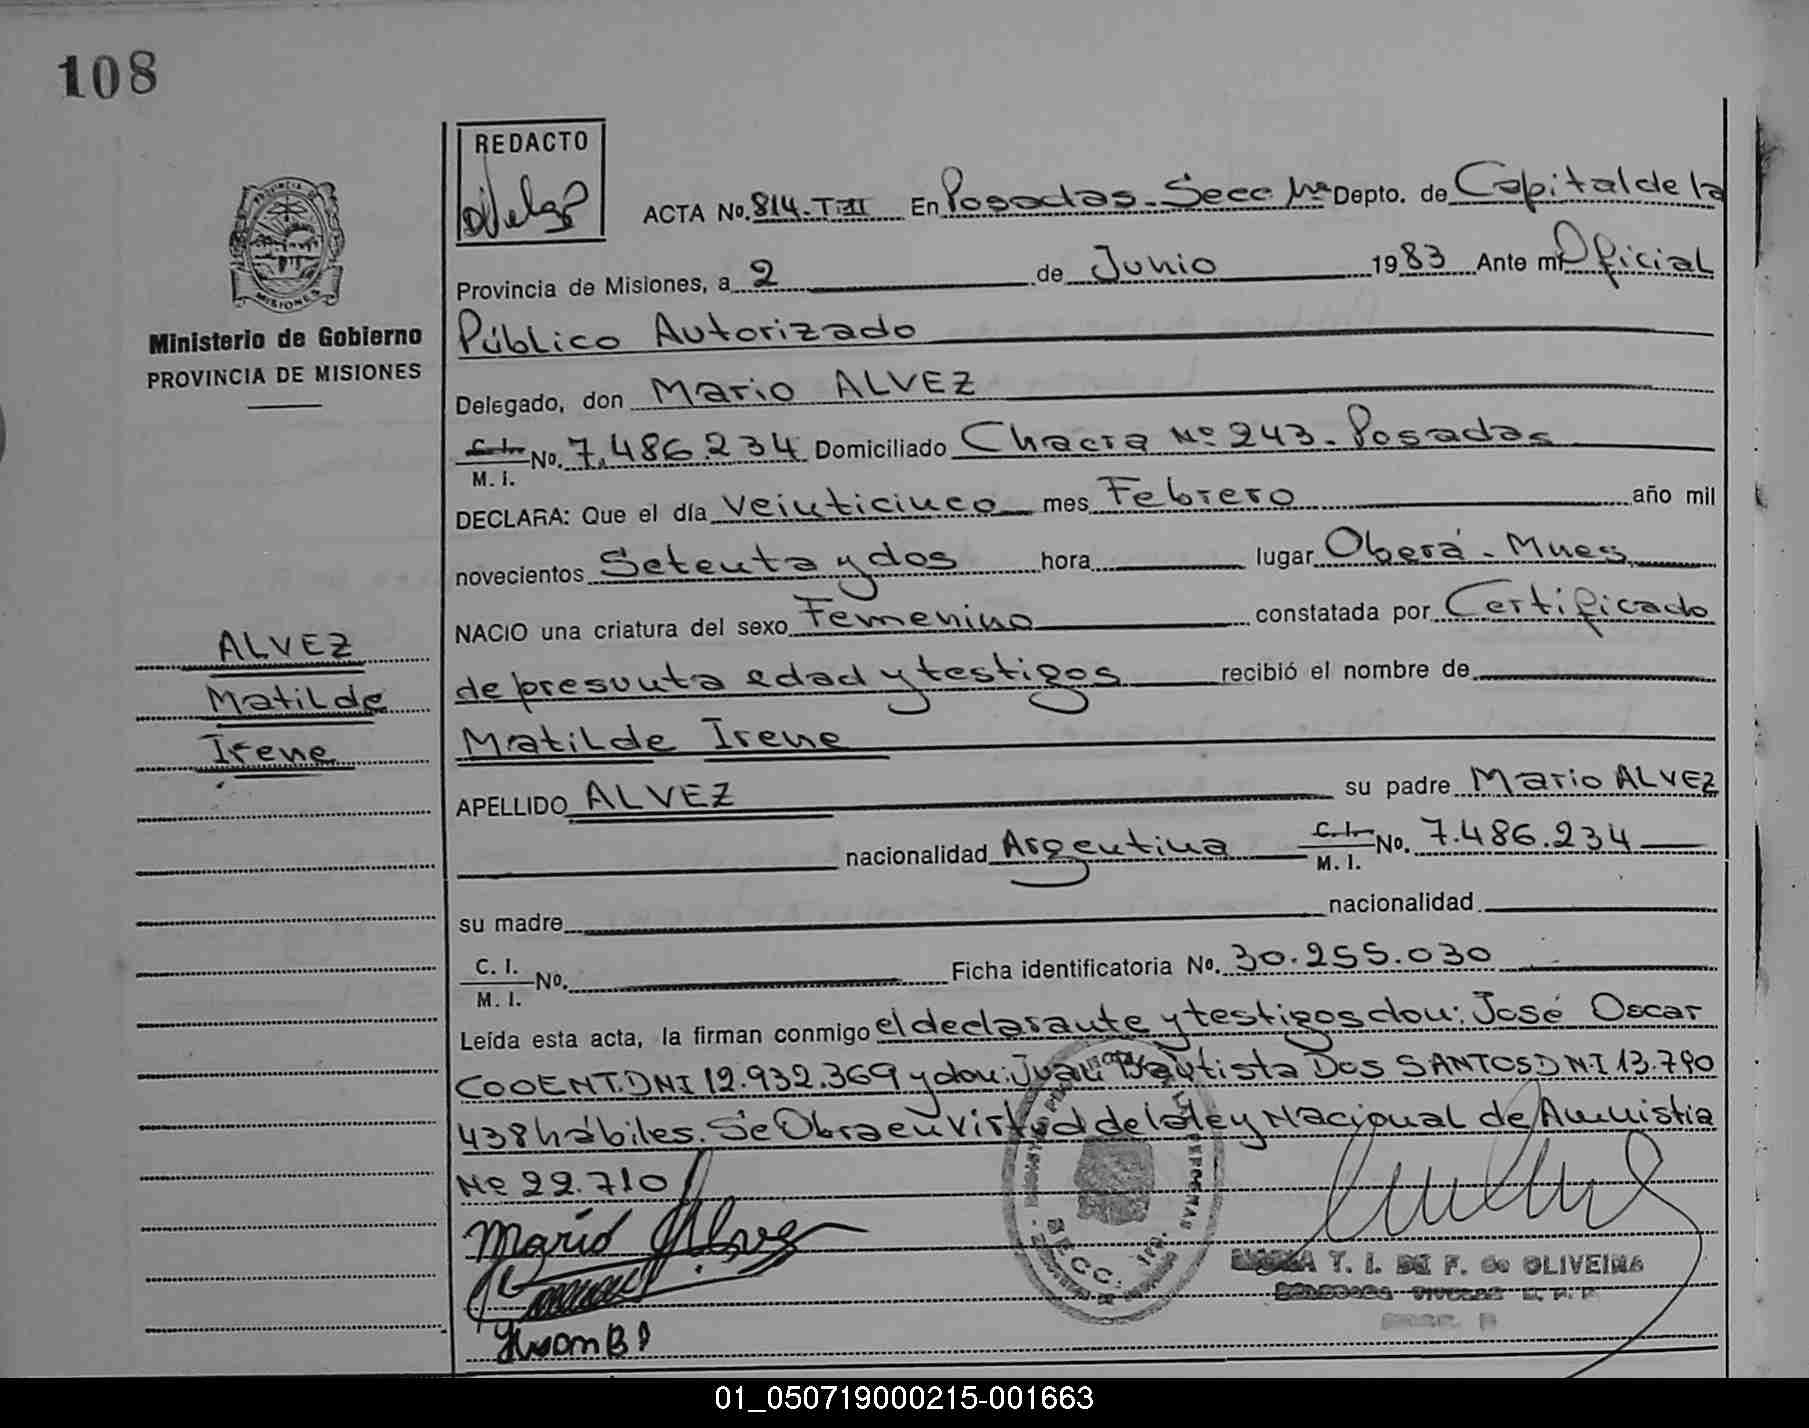 108
REDACTO
ACTA No. 814.T:II En Posadas. Secc 1ra Depto. de Capital de la
Provincia de Misiones, a 2 de Junio 1983 Ante mi Oficial
Público Autorizado
PROVINCIA DE
MISIONES
Ministerio de Gobierno
PROVINCIA DE MISIONES
Delegado, don Mario ALVEZ
C. I.
M. I. No. 7.486.234 Domiciliado Chacra Nº 243. Posadas
DECLARA: Que el día veinticinco mes Febrero año mil
novecientos Setenta y dos hora lugar Oberá - Mnes
NACIO una criatura del sexo Femenino constatada por Certificado
de presunta edad y testigos recibió el nombre de
Matilde Irene
ALVEZ
Matilde
Irene
APELLIDO ALVEZ su padre Mario ALVEZ
nacionalidad Argentina C. I.
M. I. No. 7.486.234
su madre nacionalidad
C. I.
M. I. No. Ficha identificatoria No. 30.255.030
Leída esta acta, la firman conmigo el declarante y testigos don: José Oscar
COOENT.DNI 12.932.369 y don: Juan Bautista Dos SANTOS DNI 13.790
438 hábiles. Se Obra en virtud de la ley Nacional de Amnistia
Nº 22.710
Mario Alvez
Juan B D
SECC. 1ra.
T. I. DE F. de OLIVEIRA
01_050719000215-001663